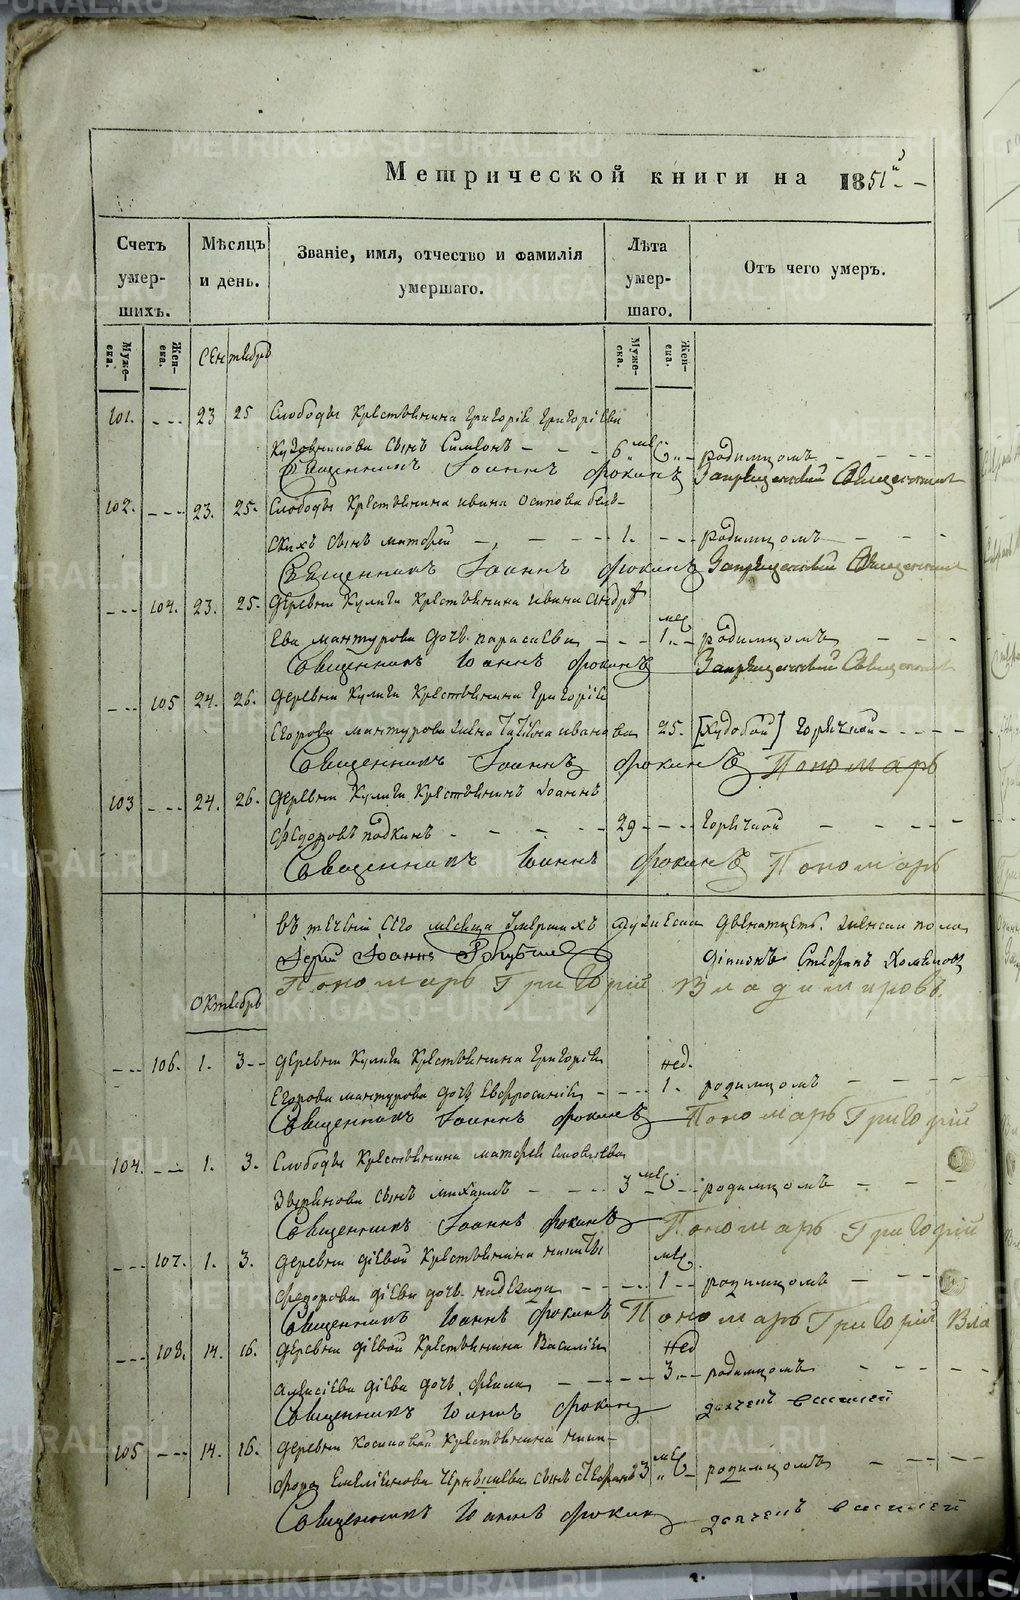 Метрической книги на 1851й
Счетъ умер-шихъ.
Мѣсяцъ и день.
Званіе, имя, отчество и фамилія умершаго.
Лѣта умер-шаго.
Отъ чего умеръ.
Муже-ска.
Жен-ска.
Сентябрь
Муже-ска.
Жен-ска.
101. 23 25 Слободы Крестьянина Григорія Григоріева
сынъ Симеонъ 6 мес родимцомъ
Священникъ Іоаннъ Фокинъ Запрещенный Священникъ
102. 23. 25. Слободы Крестьянина Ивана Осипова
скихъ сынъ Матфей 1. родимцомъ
Священникъ Іоаннъ Фокинъ Запрещенный Священникъ
104. 23. 25. Деревни Кулиги Крестьянина Ивана Андре
ева Мантурова дочь Параскева мес 1. родимцомъ
Священникъ Іоаннъ Фокинъ Запрещенный Священникъ
105 24. 26. Деревни Кулиги Крестьянина Григорія
Егорова Мантурова жена Татіана Иванова 25. [худобой] горячкой
Священникъ Іоаннъ Фокинъ Пономарь
103 24. 26. Деревни Кулиги Крестьянинъ Іоаннъ
Федоровъ 29 горячкой
Священникъ Іоаннъ Фокинъ Пономарь
Въ теченіи сего месяца умершихъ мужеска двенатцеть. женска пола
Іерей Іоаннъ Діячокъ Стефанъ
Пономарь Григорій Владимировъ.
Октябрь
106. 1. 3 Деревни Кулиги Крестьянина Григорія нед.
Егорова Мантурова дочь Евфросинія 1. родимцомъ
Священникъ Іоаннъ Фокинъ Пономарь Григорій
104. 1. 3. Слободы Крестьянина Матфея
Зверинова сынъ Михаилъ 3 мес родимцомъ
Священникъ Іоаннъ Фокинъ Пономарь Григорій
107. 1. 3. Деревни Діевой Крестьянина Никиты мес.
Федорова Діева дочь Надежда 1 родимцомъ
Священникъ Іоаннъ Фокинъ Пономарь Григорій Вла
108. 14. 16. Деревни Діевой Крестьянина Василія нед
Алексіева Діева дочь Фекла 3. родимцомъ
Священникъ Іоаннъ Фокинъ
105 14. 16. Деревни Косиковой Крестьянина Ники-
фора Емеліянова сынъ Стефанъ 3 мес родимцомъ
Священникъ Іоаннъ Фокинъ
METRIKI.GASO-URAL.RU